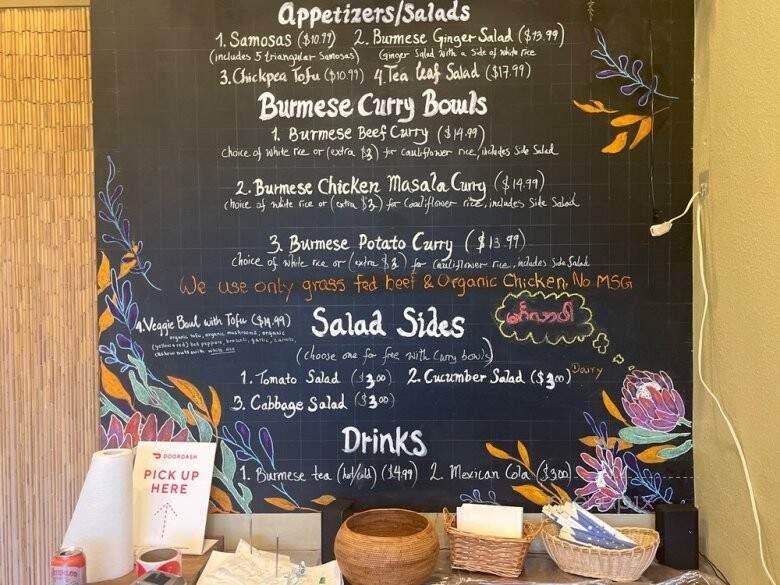 Appetizers/Salads
1. Samosas ($10.99) 2. Burmese Ginger Salad ($13.99)
(includes 5 triangular Samosas) Ginger Salad with a side of white rice
3. Chickpea Tofu ($10.99) 4. Tea Leaf Salad ($17.99)
Burmese Curry Bowls
1. Burmese Beef Curry ($14.99)
choice of white rice or (extra $3) for cauliflower rice, includes Side Salad
2. Burmese Chicken Masala Curry ($14.99)
choice of white rice or (extra $3) for cauliflower rice, includes Side Salad
3. Burmese Potato Curry ($13.99)
choice of white rice or (extra $3) for cauliflower rice, includes Side Salad
We use only grass fed beef & Organic Chicken, No MSG
4. Veggie Bowl with Tofu ($14.99)
organic tofu, organic mushrooms, organic
(yellow & red) bell peppers, broccoli, garlic, carrots,
cashew nuts with white rice
Salad Sides
(choose one for free with curry bowls)
1. Tomato Salad ($3.00) 2. Cucumber Salad ($3.00) Dairy
3. Cabbage Salad ($3.00)
Drinks
1. Burmese tea (hot/cold) ($4.99) 2. Mexican Cola ($3.00)
DOORDASH
PICK UP
HERE